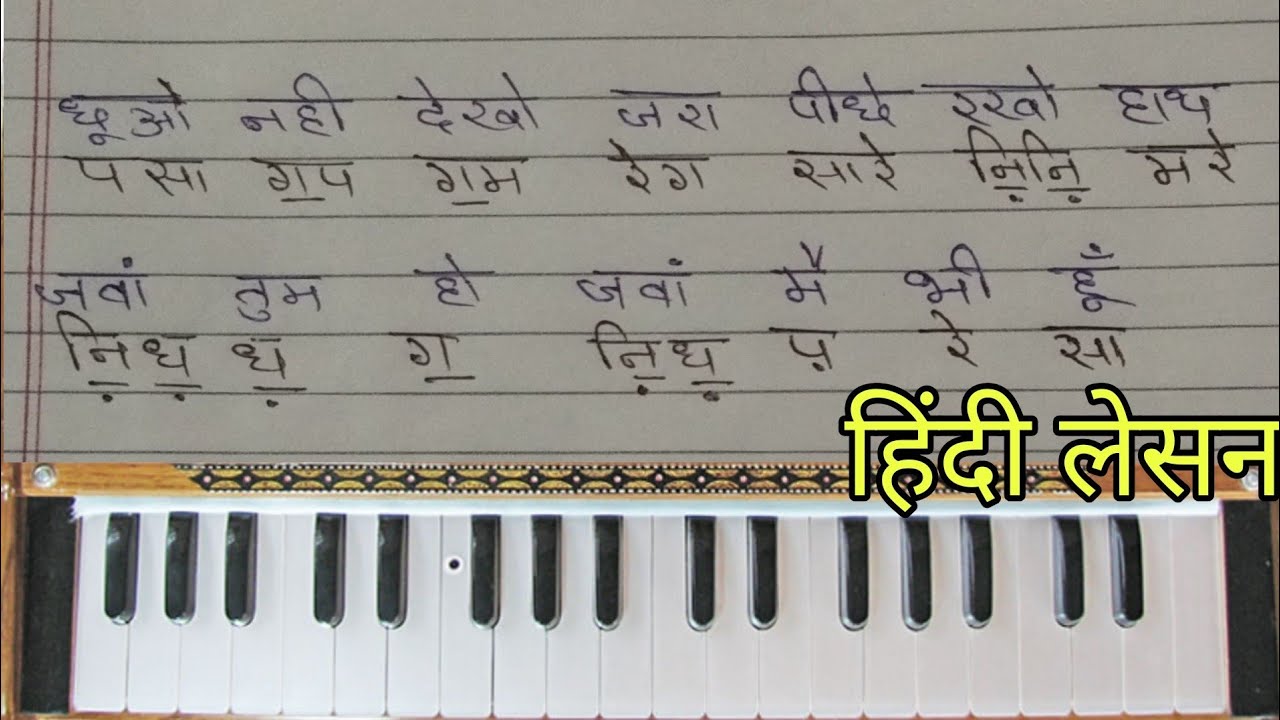 छूओ नही देखो जरा पीछे रखो हाथ
प सा ग॒प ग॒म रेग सारे नि़॒नि़॒ म रे
जवां तुम हो जवां मै भी हूँ
नि़॒ध़॒ ध़॒ ग॒ नि़॒ध़॒ प़ रे सा
हिंदी लेसन